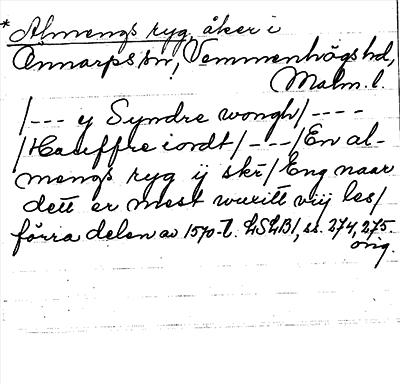 * Almengs ryg, åker i
Önnarps sn, Vemmenhögs hd,
Malm. l.
/--- ij Syndre wongh/----
/Hauffre iordt/---/En al-
mengs ryg ij skr/Eng naar
dett er mest wuritt vij les/
förra delen av 1570-t. LSLB1, ss. 274, 275.
orig.